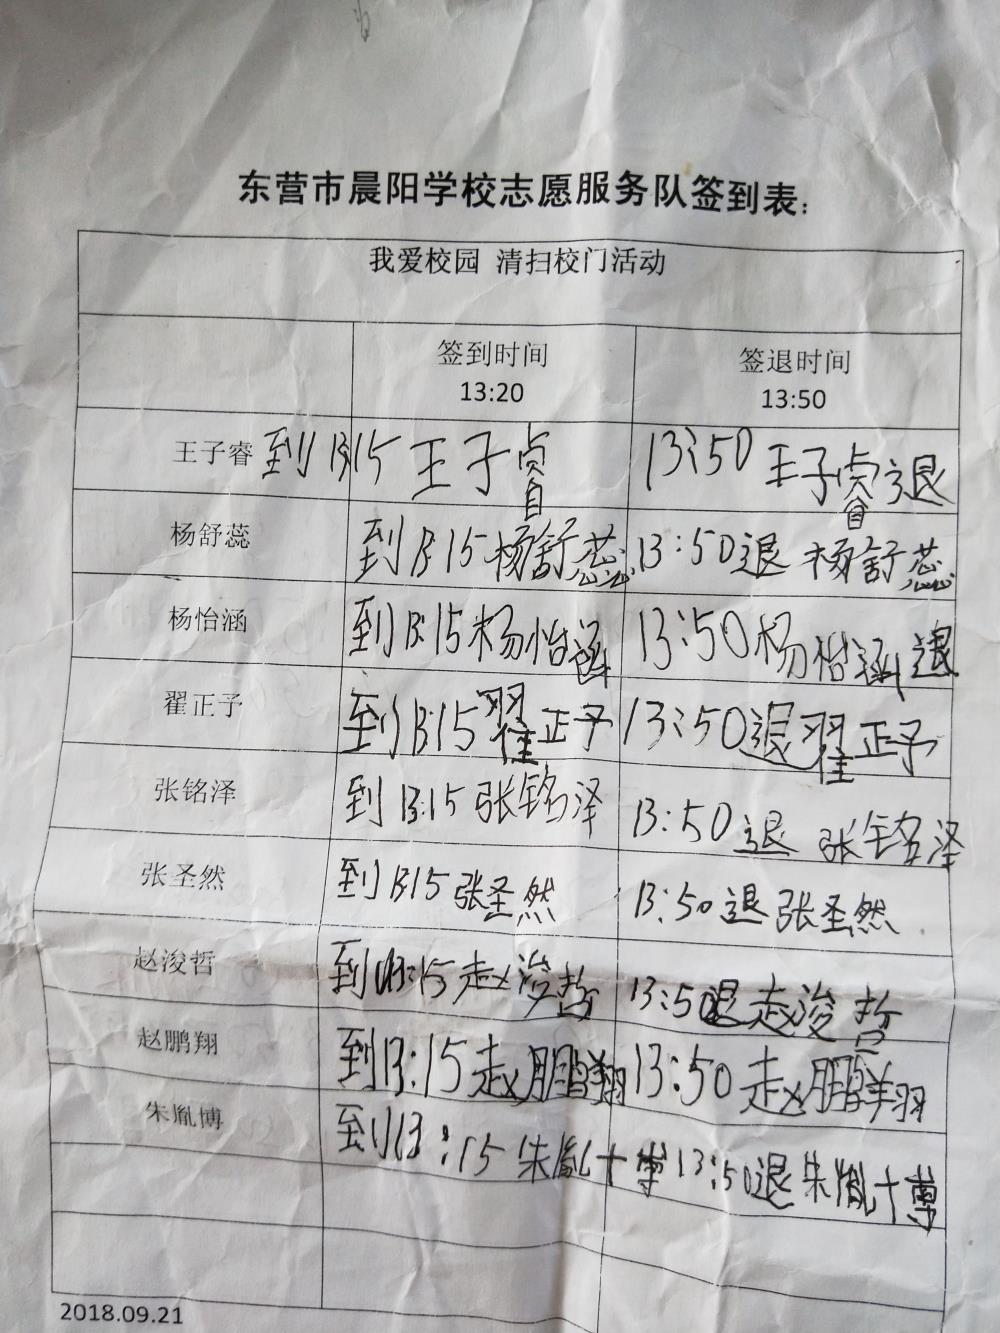 东营市晨阳学校志愿服务队签到表:
我爱校园 清扫校门活动
签到时间 签退时间
13:20 13:50
王子睿 到 13:15 王子睿 13:50 王子睿 退
杨舒蕊 到 13:15 杨舒蕊 13:50 退 杨舒蕊
杨怡涵 到 13:15 杨怡涵 13:50 杨怡涵 退
翟正予 到 13:15 翟正予 13:50 退 翟正予
张铭泽 到 13:15 张铭泽 13:50 退 张铭泽
张圣然 到 13:15 张圣然 13:50 退 张圣然
赵浚哲 到 13:15 赵浚哲 13:50 退 赵浚哲
赵鹏翔 到 13:15 赵鹏翔 13:50 赵鹏翔
朱胤博 到 13:15 朱胤博 13:50 退 朱胤博
2018.09.21